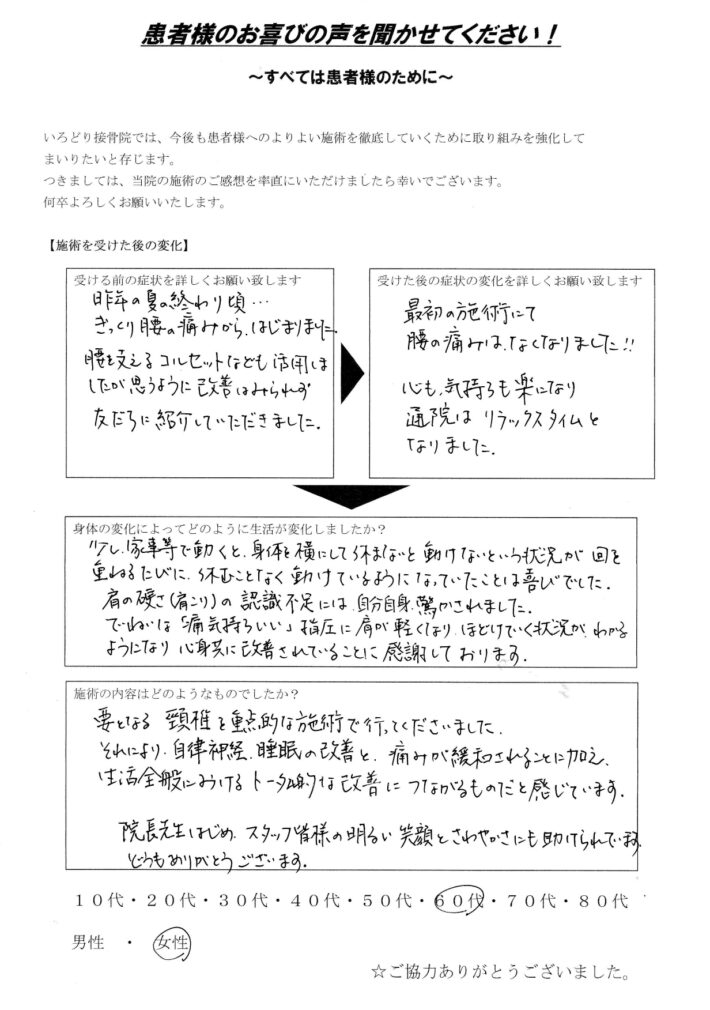 患者様のお喜びの声を聞かせてください！
～すべては患者様のために～
いろどり接骨院では、今後も患者様へのよりよい施術を徹底していくために取り組みを強化して
まいりたいと存じます。
つきましては、当院の施術のご感想を率直にいただけましたら幸いでございます。
何卒よろしくお願いいたします。
【施術を受けた後の変化】
受ける前の症状を詳しくお願い致します
昨年の夏の終わり頃…
ぎっくり腰の痛みから、はじまりました。
腰を支えるコルセットなども活用しま
したが思うように改善はみられず
友だちに紹介していただきました。
受けた後の症状の変化を詳しくお願い致します
最初の施術にて
腰の痛みは、なくなりました!!
心も、気持ちも楽になり
通院はリラックスタイムと
なりました。
身体の変化によってどのように生活が変化しましたか？
少し、家事等で動くと、身体を横にして休まないと動けないという状況が回を
重ねるたびに、休むことなく動けているようになっていたことは喜びでした。
肩の硬さ(肩こり)の認識不足には、自分自身、驚かされました。
でねいな「痛気持ちいい」指圧に肩が軽くなり、ほどけていく状況が、わかる
ようになり心身共に改善されていることに感謝しております。
施術の内容はどのようなものでしたか？
要となる頸椎を重点的な施術で行ってくださいました。
それにより、自律神経、睡眠の改善と、痛みが緩和されることに加え、
生活全般におけるトータル的な改善につながるものだと感じています。
院長先生はじめ、スタッフ皆様の明るい笑顔とさわやかさにも助けられています。
どうもありがとうございます。
１０代・２０代・３０代・４０代・５０代・６０代・７０代・８０代
男性　・　女性
☆ご協力ありがとうございました。